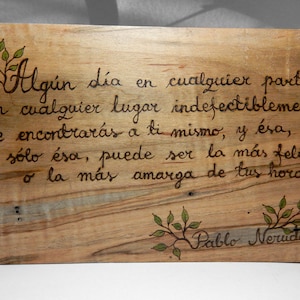 Algún día en cualquier part
n cualquier lugar indefectibleme
e encontrarás a ti mismo, y ésa,
sólo ésa, puede ser la más feli
o la más amarga de tus hora
Pablo Neruda